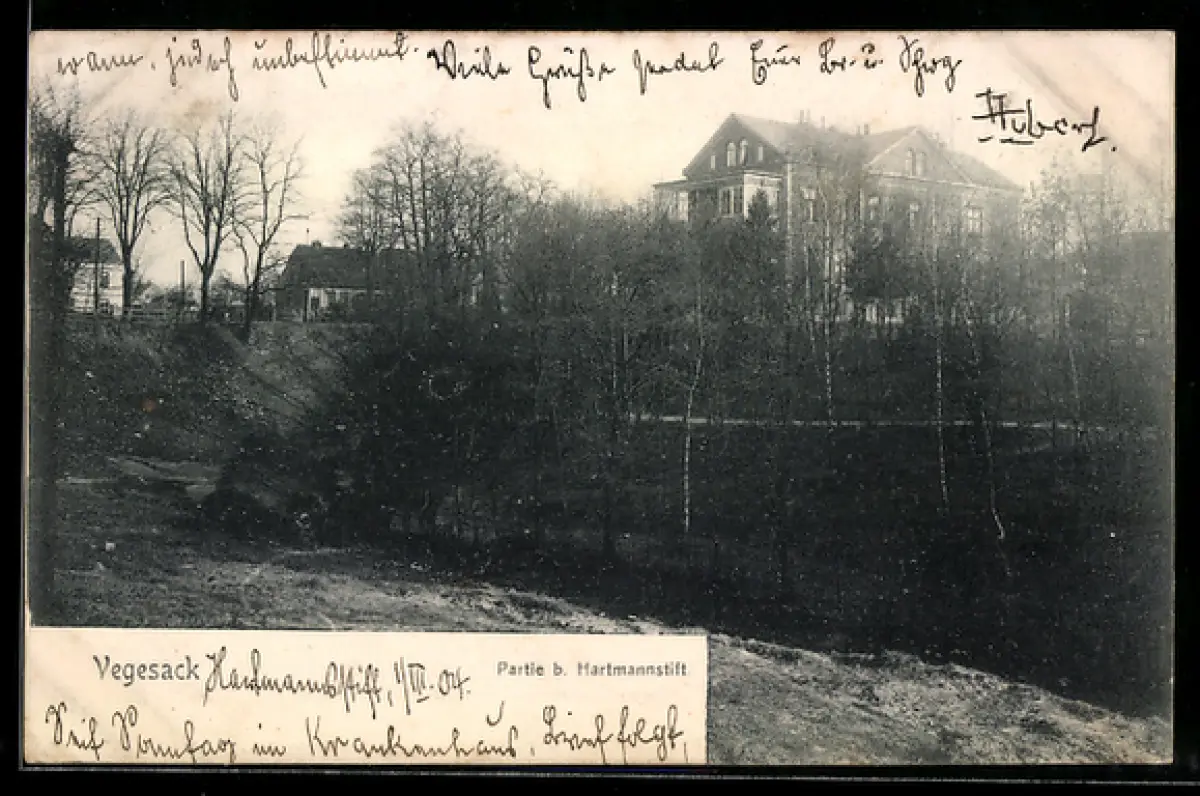 wann, jedoch unbestimmt. Viele Grüße sendet Euer Br. u. Schwg
Hubert.
Vegesack Hartmannstift, 1/III. 04. Partie b. Hartmannstift.
Seit Sonntag im Krankenhaus, Brief folgt,